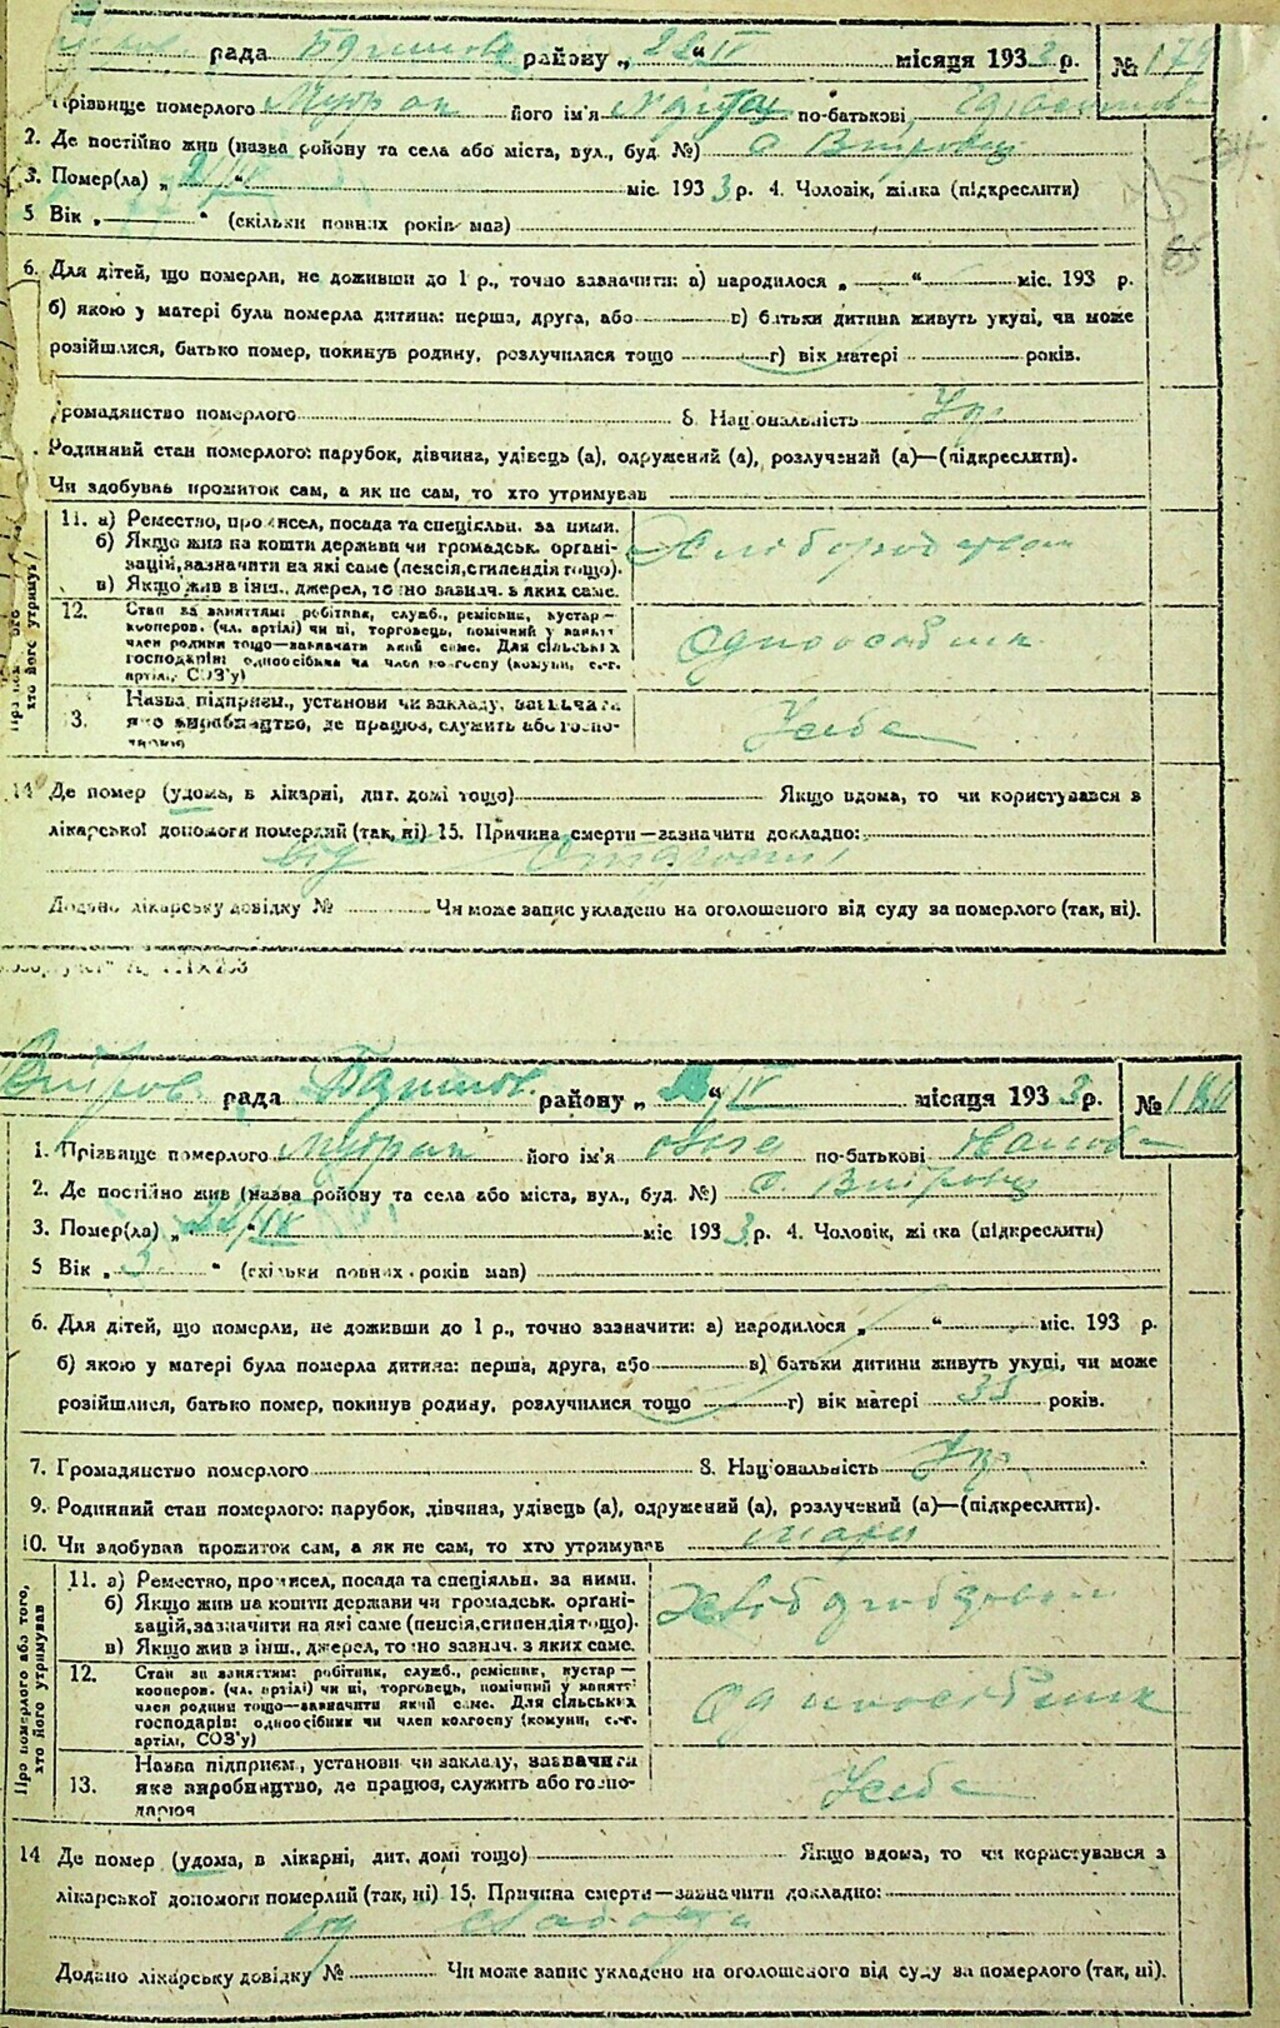 рада району „ 22 “ IV місяця 1933 р. № 179
Прізвище померлого його ім'я по-батькові
2. Де постійно жив (назва ройону та села або міста, вул., буд. №) с. Вигровці
3. Помер(ла) „ “ міс. 193 3 р. 4. Чоловік, жінка (підкреслити)
5 Вік „ “ (скільки повних років мав)
6. Для дітей, що померли, не доживши до 1 р., точно зазначити: а) народилося „ “ міс. 193 р.
б) якою у матері була померла дитина: перша, друга, або в) батьки дитини живуть укупі, чи може
розійшлися, батько помер, покинув родину, розлучилися тощо г) вік матері років.
Громадянство померлого 8. Національність Укр.
Родинний стан померлого: парубок, дівчина, удівець (а), одружений (а), розлучений (а)—(підкреслити).
Чи здобував прожиток сам, а як не сам, то хто утримував
11. а) Ремество, промисел, посада та спеціяльн. за ними.
б) Якщо жив на кошти держави чи громадськ. органі-
зацій, зазначити на які саме (пенсія, стипендія тощо).
в) Якщо жив в інш., джерел, точно зазнач. з яких саме.
Хліборобством
12. Стан за заняттям: робітник, служб., ремісник, кустар—
кооперов. (чл. артілі) чи ні, торговець, помічний у занятт
член родини тощо—зазначати який саме. Для сільських
господарів: одноосібник чи член колгоспу (комуни, с.-г.
артілі, СОЗ'у)
Одноосібник
3. Назва підприєм., установи чи закладу, зазначити
яке виробництво, де працює, служить або госпо-
дарює
У себе
14 Де помер (удома, в лікарні, дит. домі тощо) Якщо вдома, то чи користувався з
лікарської допомоги померлий (так, ні) 15. Причина смерти—зазначити докладно:
від старості
Додано лікарську довідку № Чи може запис укладено на оголошеного від суду за померлого (так, ні).
рада району „ “ IV місяця 193 3 р. № 180
1. Прізвище померлого його ім'я по-батькові
2. Де постійно жив (назва ройону та села або міста, вул., буд. №) с. Вигровці
3. Помер(ла) „ 22 “ IV міс 193 3 р. 4. Чоловік, жінка (підкреслити)
5 Вік „ 3 “ (скільки повних років мав)
6. Для дітей, що померли, не доживши до 1 р., точно зазначити: а) народилося „ “ міс. 193 р.
б) якою у матері була померла дитина: перша, друга, або в) батьки дитини живуть укупі, чи може
розійшлися, батько помер, покинув родину, розлучилися тощо г) вік матері років.
7. Громадянство померлого 8. Національність Укр.
9. Родинний стан померлого: парубок, дівчина, удівець (а), одружений (а), розлучений (а)—(підкреслити).
10. Чи здобував прожиток сам, а як не сам, то хто утримував
Про померлого або того,
хто його утримував
11. а) Ремество, промисел, посада та спеціяльн. за ними.
б) Якщо жив на кошти держави чи громадськ. органі-
зацій, зазначити на які саме (пенсія, стипендія тощо).
в) Якщо жив з інш., джерел, точно зазнач. з яких саме.
Хліборобством
12. Стан за заняттям: робітник, служб., ремісник, кустар—
кооперов. (чл. артілі) чи ні, торговець, помічний у занятт
член родини тощо—зазначити який саме. Для сільських
господарів: одноосібник чи член колгоспу (комуни, с.-г.
артілі, СОЗ'у)
Одноосібник
13. Назва підприєм., установи чи закладу, зазначити
яке виробництво, де працює, служить або госпо-
дарює
У себе
14 Де помер (удома, в лікарні, дит. домі тощо) Якщо вдома, то чи користувався з
лікарської допомоги померлий (так, ні) 15. Причина смерти—зазначити докладно:
від
Додано лікарську довідку № Чи може запис укладено на оголошеного від суду за померлого (так, ні).